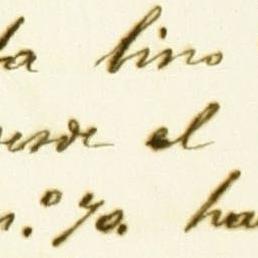 la lino
desde el
n.º 70. ha